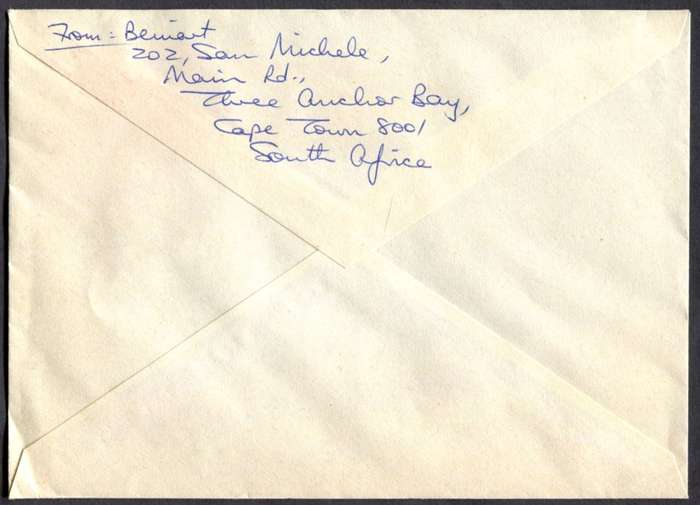 From: Beinart
202, San Michele,
Main Rd.,
Three Anchor Bay,
Cape Town 8001
South Africa